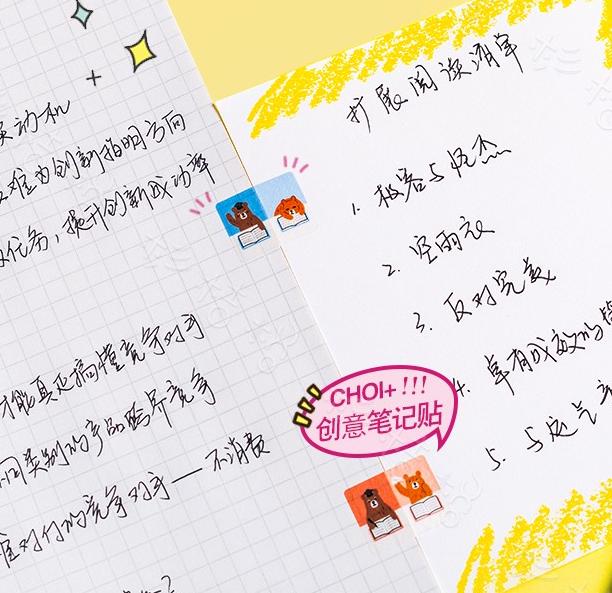 动机
难为创新指明方向
任务，提升创新成功率
才能真正搞懂竞争对手
同类别的产品跨界竞争
难对付的竞争对手——不消费
扩展阅读清单
1. 极客与怪杰
2. 空雨衣
3. 反对完美
4. 卓有成效的管
5. 与运气
CHOI+ !!!
创意笔记贴